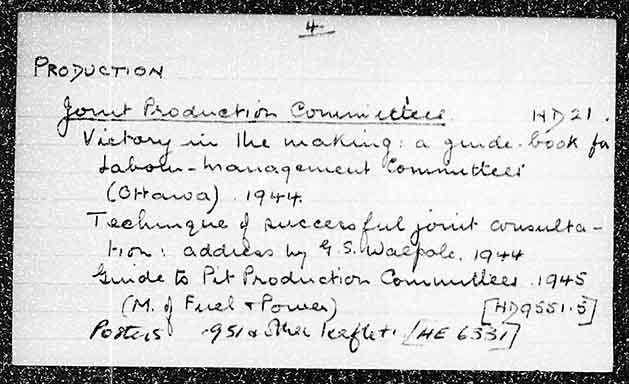 4
PRODUCTION
Joint Production Committees. HD 21.
Victory in the making: a guide-book for
Labour-management Committees
(Ottawa). 1944.
Technique of successful joint consulta-
tion: address by G.S. Walpole. 1944
Guide to Pit Production Committees. 1945
(M. of Fuel & Power) [HD9551.5]
Posters & other leaflets [HE 6331]